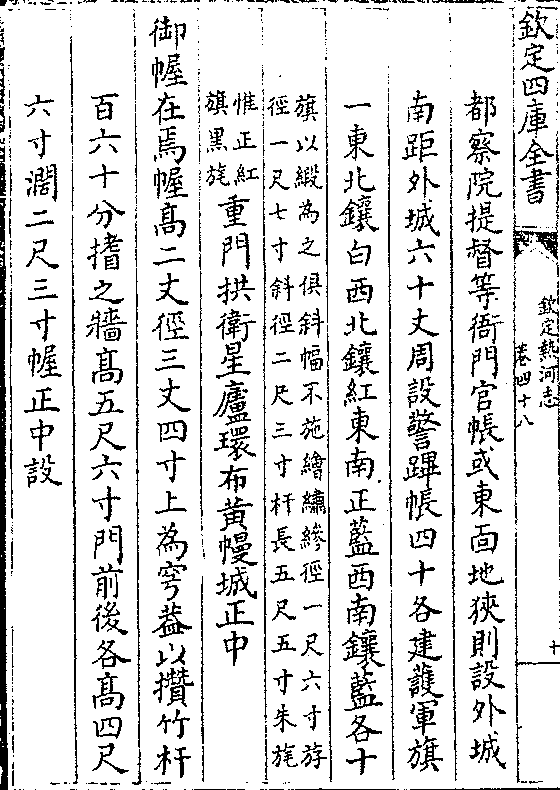 欽定四庫全書
欽定熱河志
卷四十八
十
都察院提督等衙門官帳或東面地狹則設外城
南距外城六十丈周設警蹕帳四十各建護軍旗
一東北鑲白西北鑲紅東南正藍西南鑲藍各十
旗以緞為之俱斜幅不施繪繡縿徑一尺六寸斿
徑一尺七寸斜徑二尺三寸杆長五尺五寸朱旄
惟正紅
旗黑旄
重門拱衛星廬環布黃幔城正中
御幄在焉幄高二丈徑三丈四寸上為穹葢以攢竹杆
百六十分揩之牆高五尺六寸門前後各高四尺
六寸濶二尺三寸幄正中設